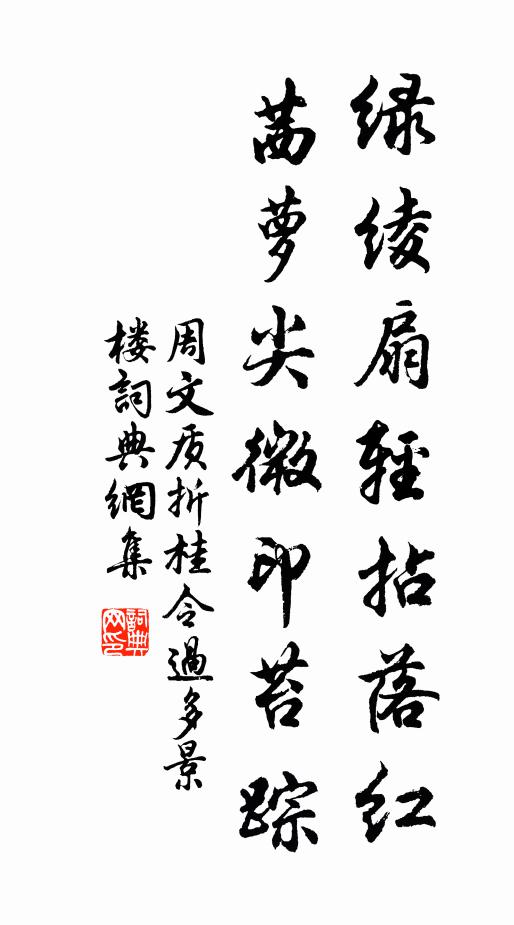 绿绫扇轻拈落红
茜萝尖微印苔踪
周文质折桂令過多景
楼詞典網集
詞典網印